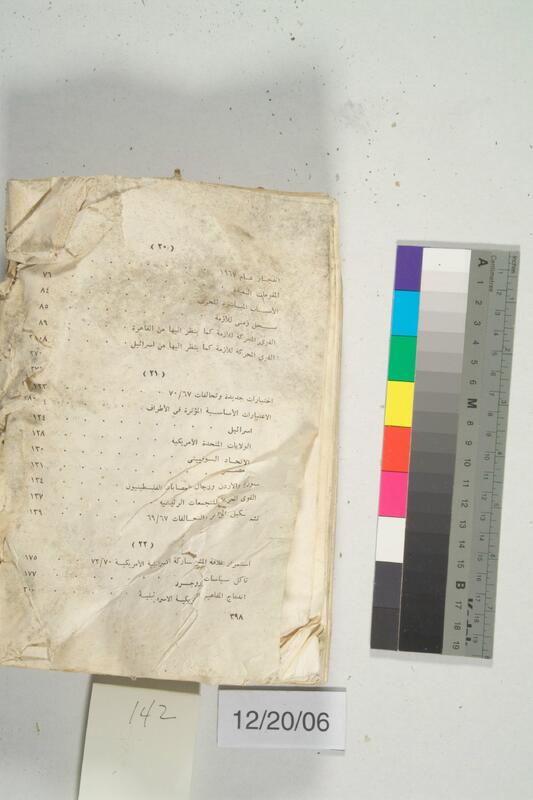 ( ٢٠ )
انفجار عام ١٩٦٧ ٧٦
المقومات ٨٤
الأسباب المباشرة للحرب ٨٥
سجل زمني للأزمة ٨٩
القوى المحركة للأزمة كما ينظر اليها من القاهرة
القوى المحركة للأزمة كما ينظر اليها من اسرائيل
( ٢١ )
اختبارات جديدة وتحالفات ٧٠/٦٧
الاعتبارات الأساسية المؤثرة في الأطراف
اسرائيل ١٢٤
الولايات المتحدة الأمريكية ١٢٨
الاتحاد السوفييتي ١٣٠
مصر ١٣١
سوريا والأردن ورجال عصابات الفلسطينيون ١٣٤
القوى المحركة للتجمعات الرئيسية ١٣٧
التحالفات ٦٩/٦٧ ١٣٩
( ٢٢ )
استمرار علاقة المشاركة الأمريكية ٧٣/٧٠ ١٧٥
تآكل سياسات روجرز ١٧٧
اندماج المفاهيم ٢٠٠
٣٩٨
inches
Centimetres
A 1 2 3 4 5 6 M 8 9 10 11 12 13 14 15 B 17 18 19
142
12/20/06